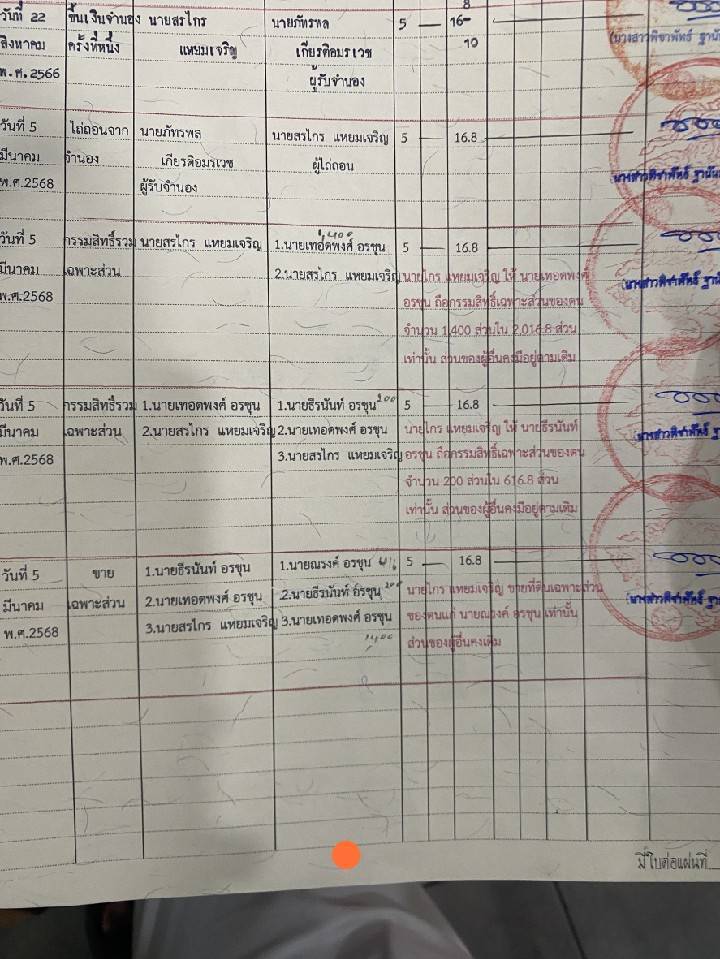 8
วันที่ 22 ขึ้นเงินจำนอง นายสรไกร นายภัทรพล 5 — 16-
สิงหาคม ครั้งที่หนึ่ง แหยมเจริญ เกียรติอมรเวช 90
พ.ศ. 2566 ผู้รับจำนอง
วันที่ 5 ไถ่ถอนจาก นายภัทรพล นายสรไกร แหยมเจริญ 5 — 16.8
มีนาคม จำนอง เกียรติอมรเวช ผู้ไถ่ถอน
พ.ศ.2568 ผู้รับจำนอง
วันที่ 5 กรรมสิทธิ์รวม นายสรไกร แหยมเจริญ 1.นายเทอดพงศ์ อรชุน 5 — 16.8
มีนาคม เฉพาะส่วน 2.นายสรไกร แหยมเจริญ นายไกร แหยมเจริญ ให้ นายเทอดพงศ์
พ.ศ.2568 อรชุน ถือกรรมสิทธิ์เฉพาะส่วนของตน
จำนวน 1,400 ส่วนใน 2,016.8 ส่วน
เท่านั้น ส่วนของผู้อื่นคงมีอยู่ตามเดิม
วันที่ 5 กรรมสิทธิ์รวม 1.นายเทอดพงศ์ อรชุน 1.นายธีรนันท์ อรชุน 200 5 16.8
มีนาคม เฉพาะส่วน 2.นายสรไกร แหยมเจริญ 2.นายเทอดพงศ์ อรชุน นายไกร แหยมเจริญ ให้ นายธีรนันท์
พ.ศ.2568 3.นายสรไกร แหยมเจริญ อรชุน ถือกรรมสิทธิ์เฉพาะส่วนของตน
จำนวน 200 ส่วนใน 616.8 ส่วน
เท่านั้น ส่วนของผู้อื่นคงมีอยู่ตามเดิม
วันที่ 5 ขาย 1.นายธีรนันท์ อรชุน 1.นายณรงค์ อรชุน 5 — 16.8
มีนาคม เฉพาะส่วน 2.นายเทอดพงศ์ อรชุน 2.นายธีรนันท์ อรชุน 200 นายไกร แหยมเจริญ ขายที่ดินเฉพาะส่วน
พ.ศ.2568 3.นายสรไกร แหยมเจริญ 3.นายเทอดพงศ์ อรชุน ของตนแก่ นายณรงค์ อรชุน เท่านั้น
1400 ส่วนของผู้อื่นคงเดิม
มีใบต่อแผ่นที่